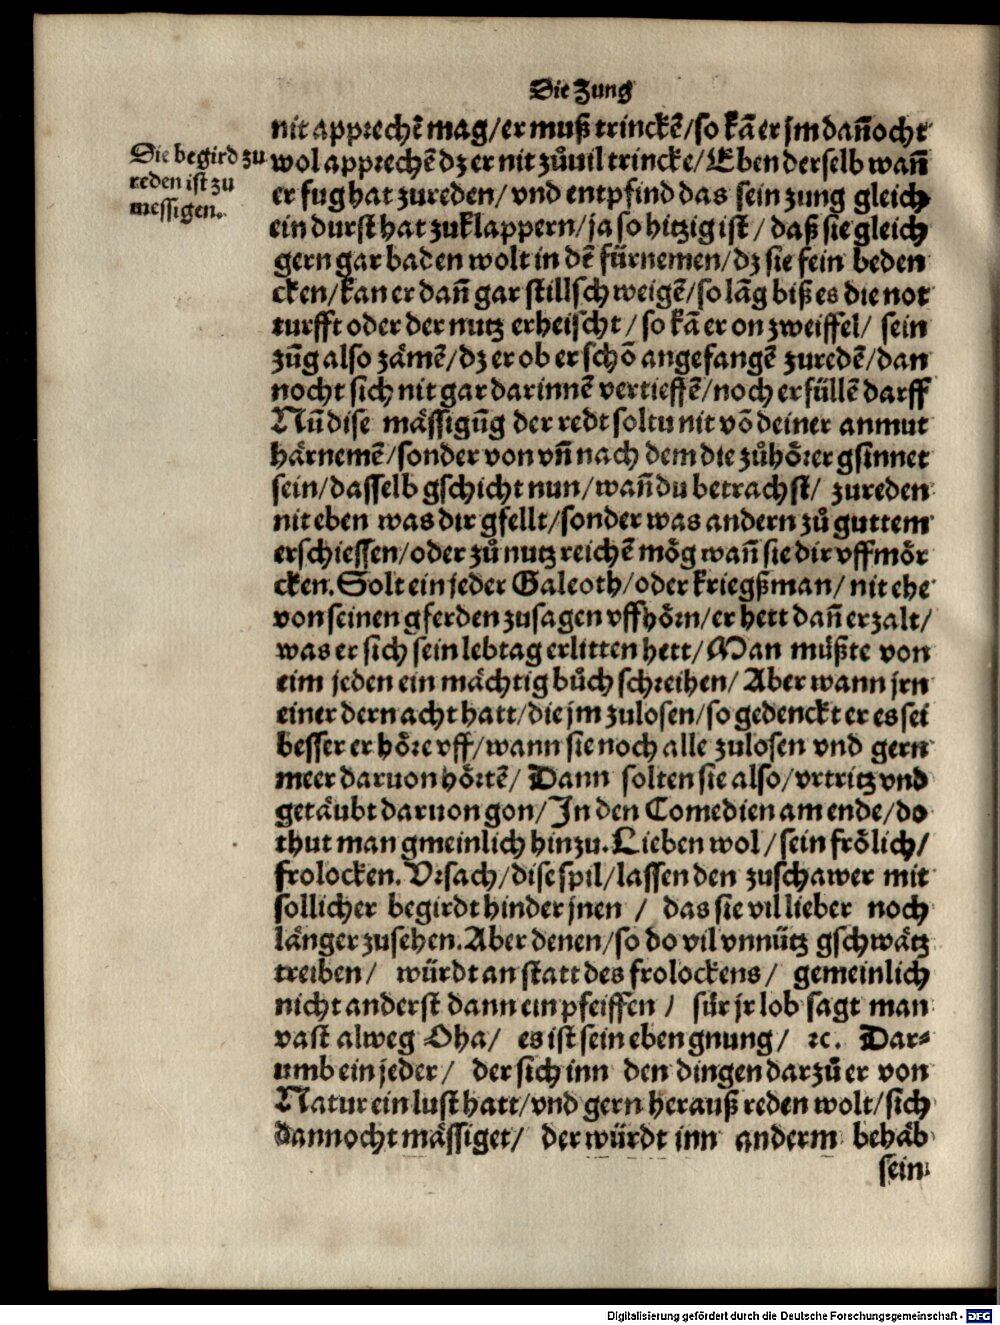 Die Zung
nit apprechẽ mag/er muß trinckẽ/so kã er jm dañocht
Die begird zu
reden ist zu
messigen.
wol apprechẽ dz er nit zůuil trincke/Eben derselb wañ
er fug hat zureden/vnd entpfind das sein zung gleich
ein durst hat zuklappern/ja so hitzig ist/ daß sie gleich
gern gar baden wolt in dẽ fürnemen/dz sie fein beden
cken/kan er dañ gar stillschweigẽ/so lãg biß es die not
turfft oder der nutz erheischt/ so kã er on zweiffel/ sein
zũg also zämẽ/dz er ob er schõ angefangẽ zuredẽ/dan
nocht sich nit gar darinnẽ vertieffẽ/noch erfüllẽ darff
Nũ dise mässigũg der redt soltu nit võ deiner anmut
härnemẽ/sonder von vñ nach dem die zůhörer gsinnet
sein/dasselb gschicht nun/wañ du betrachst/ zureden
nit eben was dir gfellt/sonder was andern zů guttem
erschiessen/oder zů nutz reichẽ mög wañ sie dir vffmör
cken. Solt ein jeder Galeoth/oder kriegßman/ nit ehe
von seinen gferden zusagen vffhörn/er hett dañ erzalt/
was er sich sein lebtag erlitten hett/Man müßte von
eim jeden ein mächtig bůch schreiben/ Aber wann jrn
einer dern acht hatt/die jm zulosen/so gedenckt er es sei
besser er höre vff/wann sie noch alle zulosen vnd gern
meer daruon hörtẽ/ Dann solten sie also/vrtritz vnd
getäubt daruon gon/In den Comedien am ende/do
thut man gmeinlich hinzu. Lieben wol/sein frölich/
frolocken. Vrsach/dise spil/lassen den zuschawer mit
sollicher begirdt hinder jnen / das sie vil lieber noch
länger zusehen. Aber denen/so do vil vnnütz gschwätz
treiben/ würdt an statt des frolockens/ gemeinlich
nicht anderst dann ein pfeiffen / für jr lob sagt man
vast alweg Oha/ es ist sein eben gnung/ ꝛc. Dar⸗
umb ein jeder/ der sich inn den dingen darzů er von
Natur ein lust hatt/vnd gern herauß reden wolt/sich
dannocht mässiget/ der würdt inn anderm behäb
sein
Digitalisierung gefördert durch die Deutsche Forschungsgemeinschaft - DFG